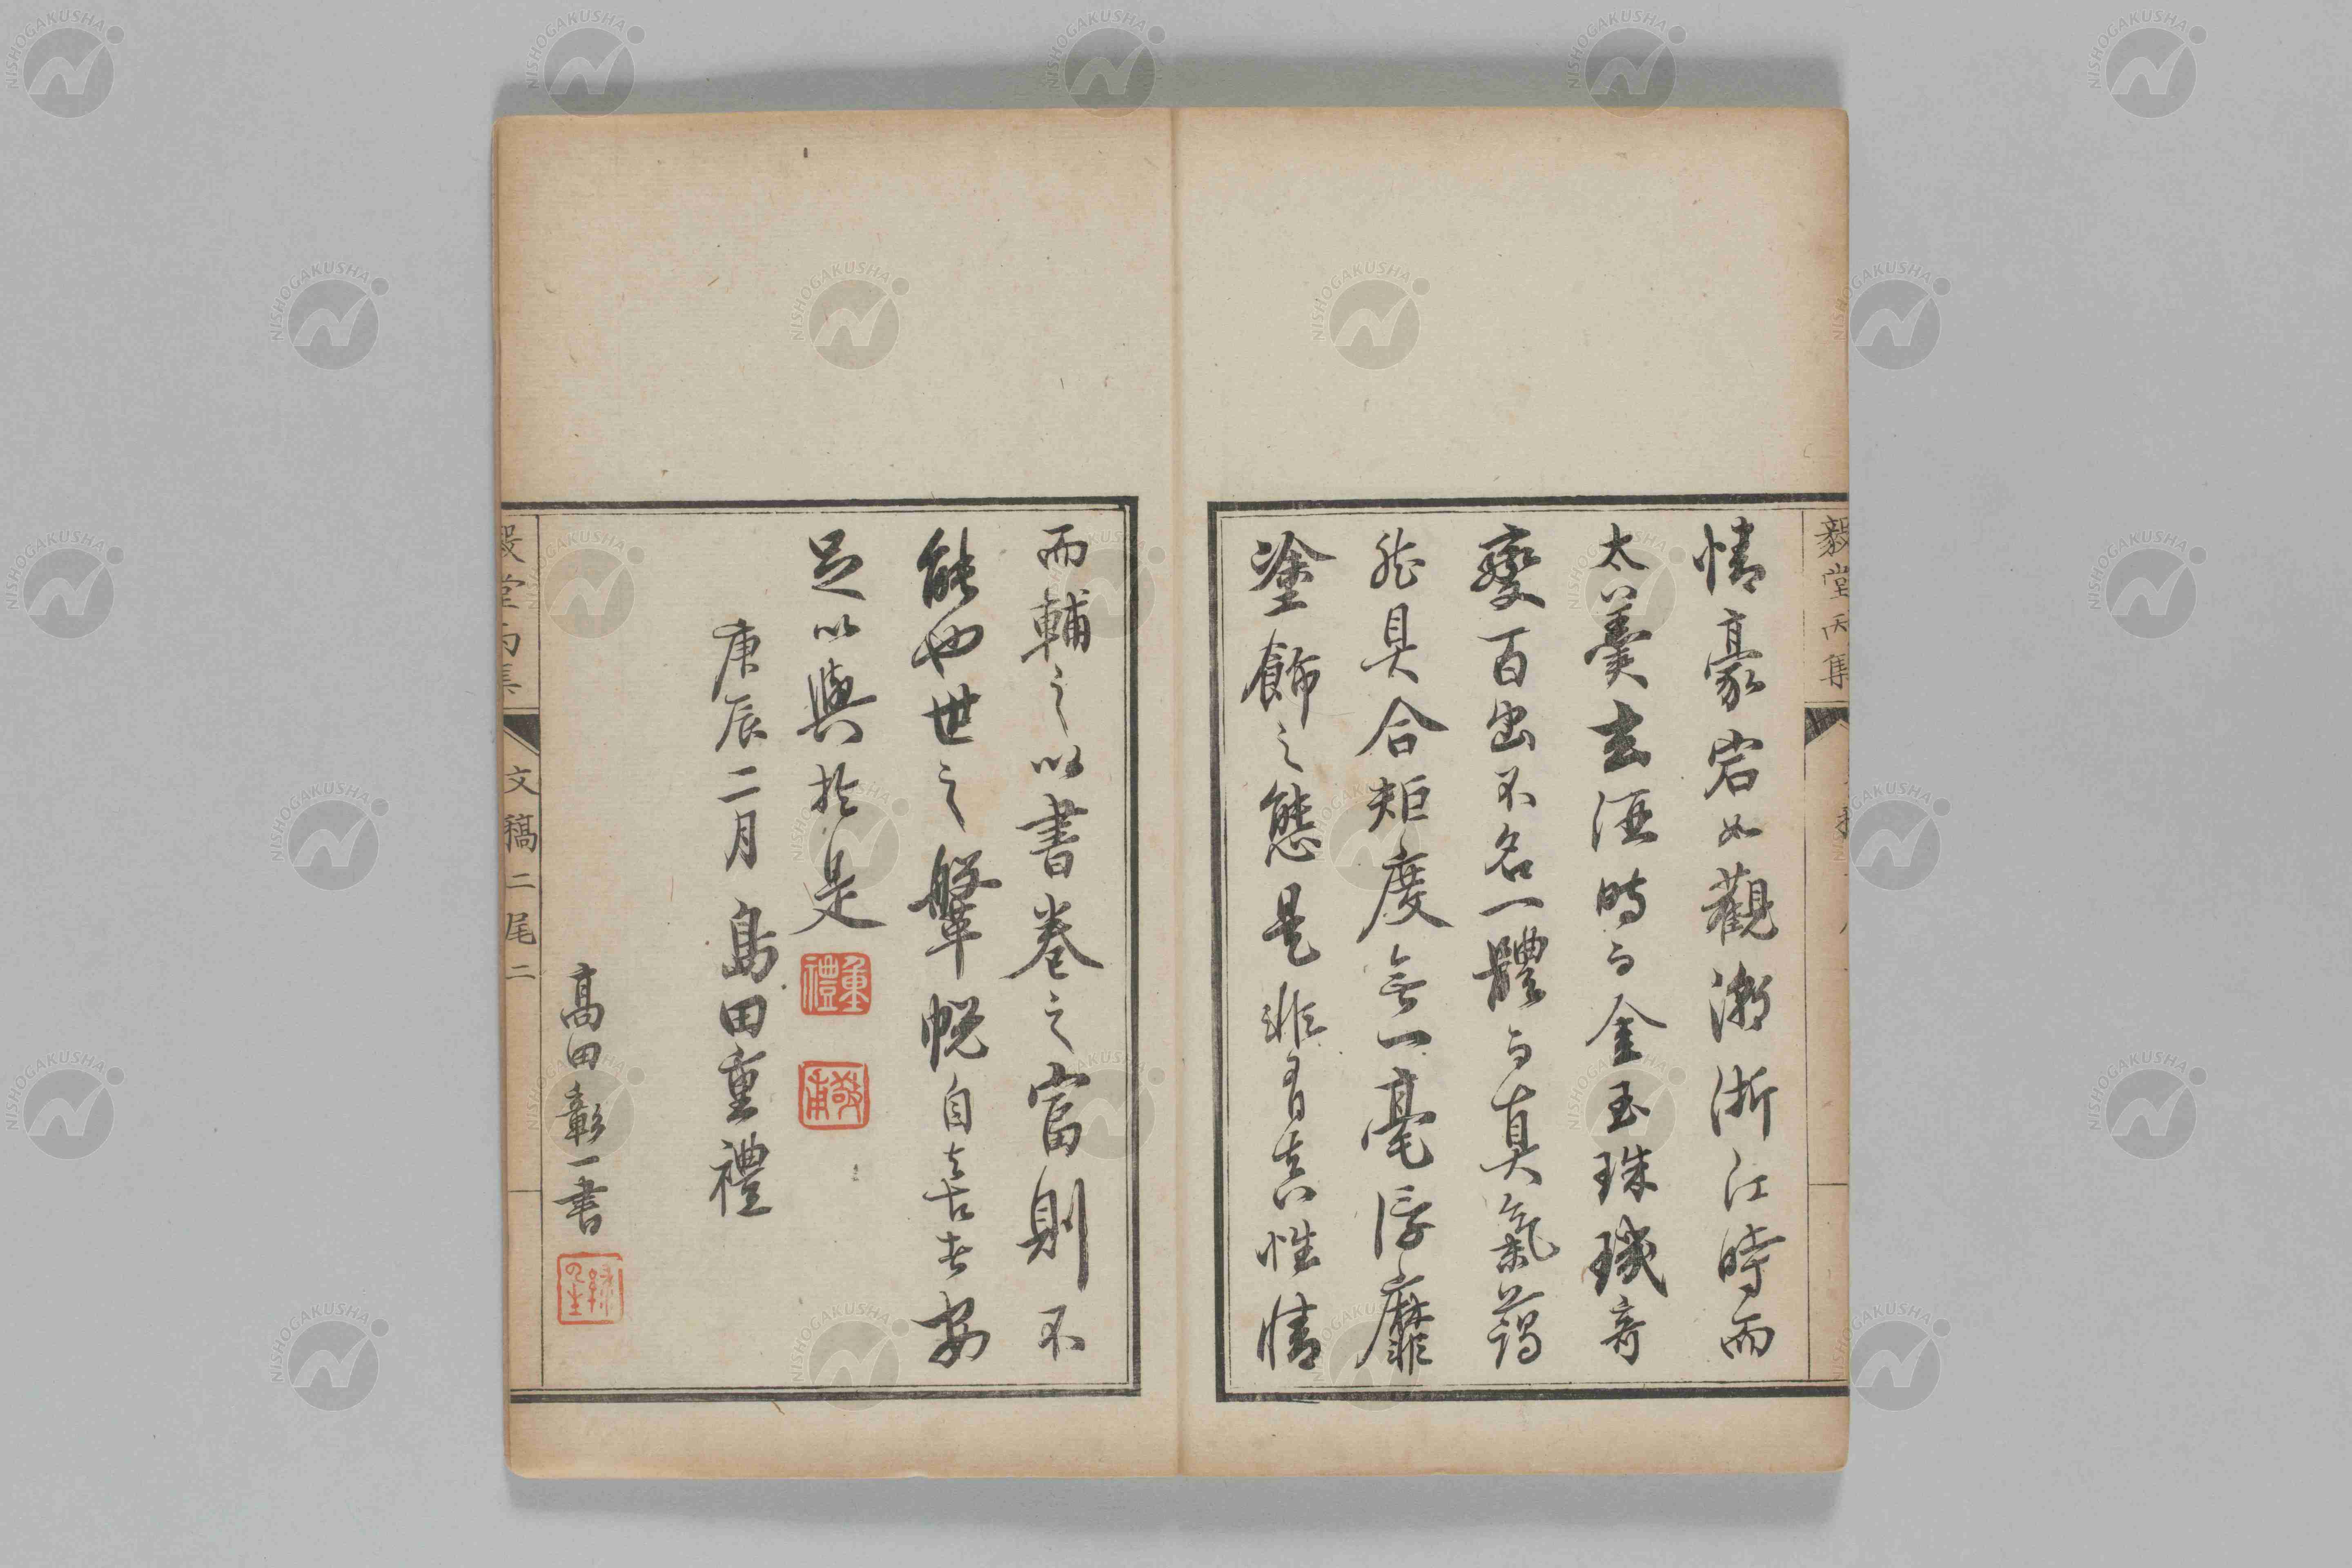 毅堂丙集
情豪宕如觀潮浙江時而
太羹玄酒時而金玉珠璣奇
變百出不名一體而真氣藹
然具合矩度無一毫浮靡
塗飾之態是非有真性情
而輔之以書卷之富則不
能也世之鞶帨自喜者安
足以與於是
重禮
敬甫
庚辰二月 島田重禮
高田彰一書
毅堂丙集
文稿二尾二
NISHOGAKUSHA